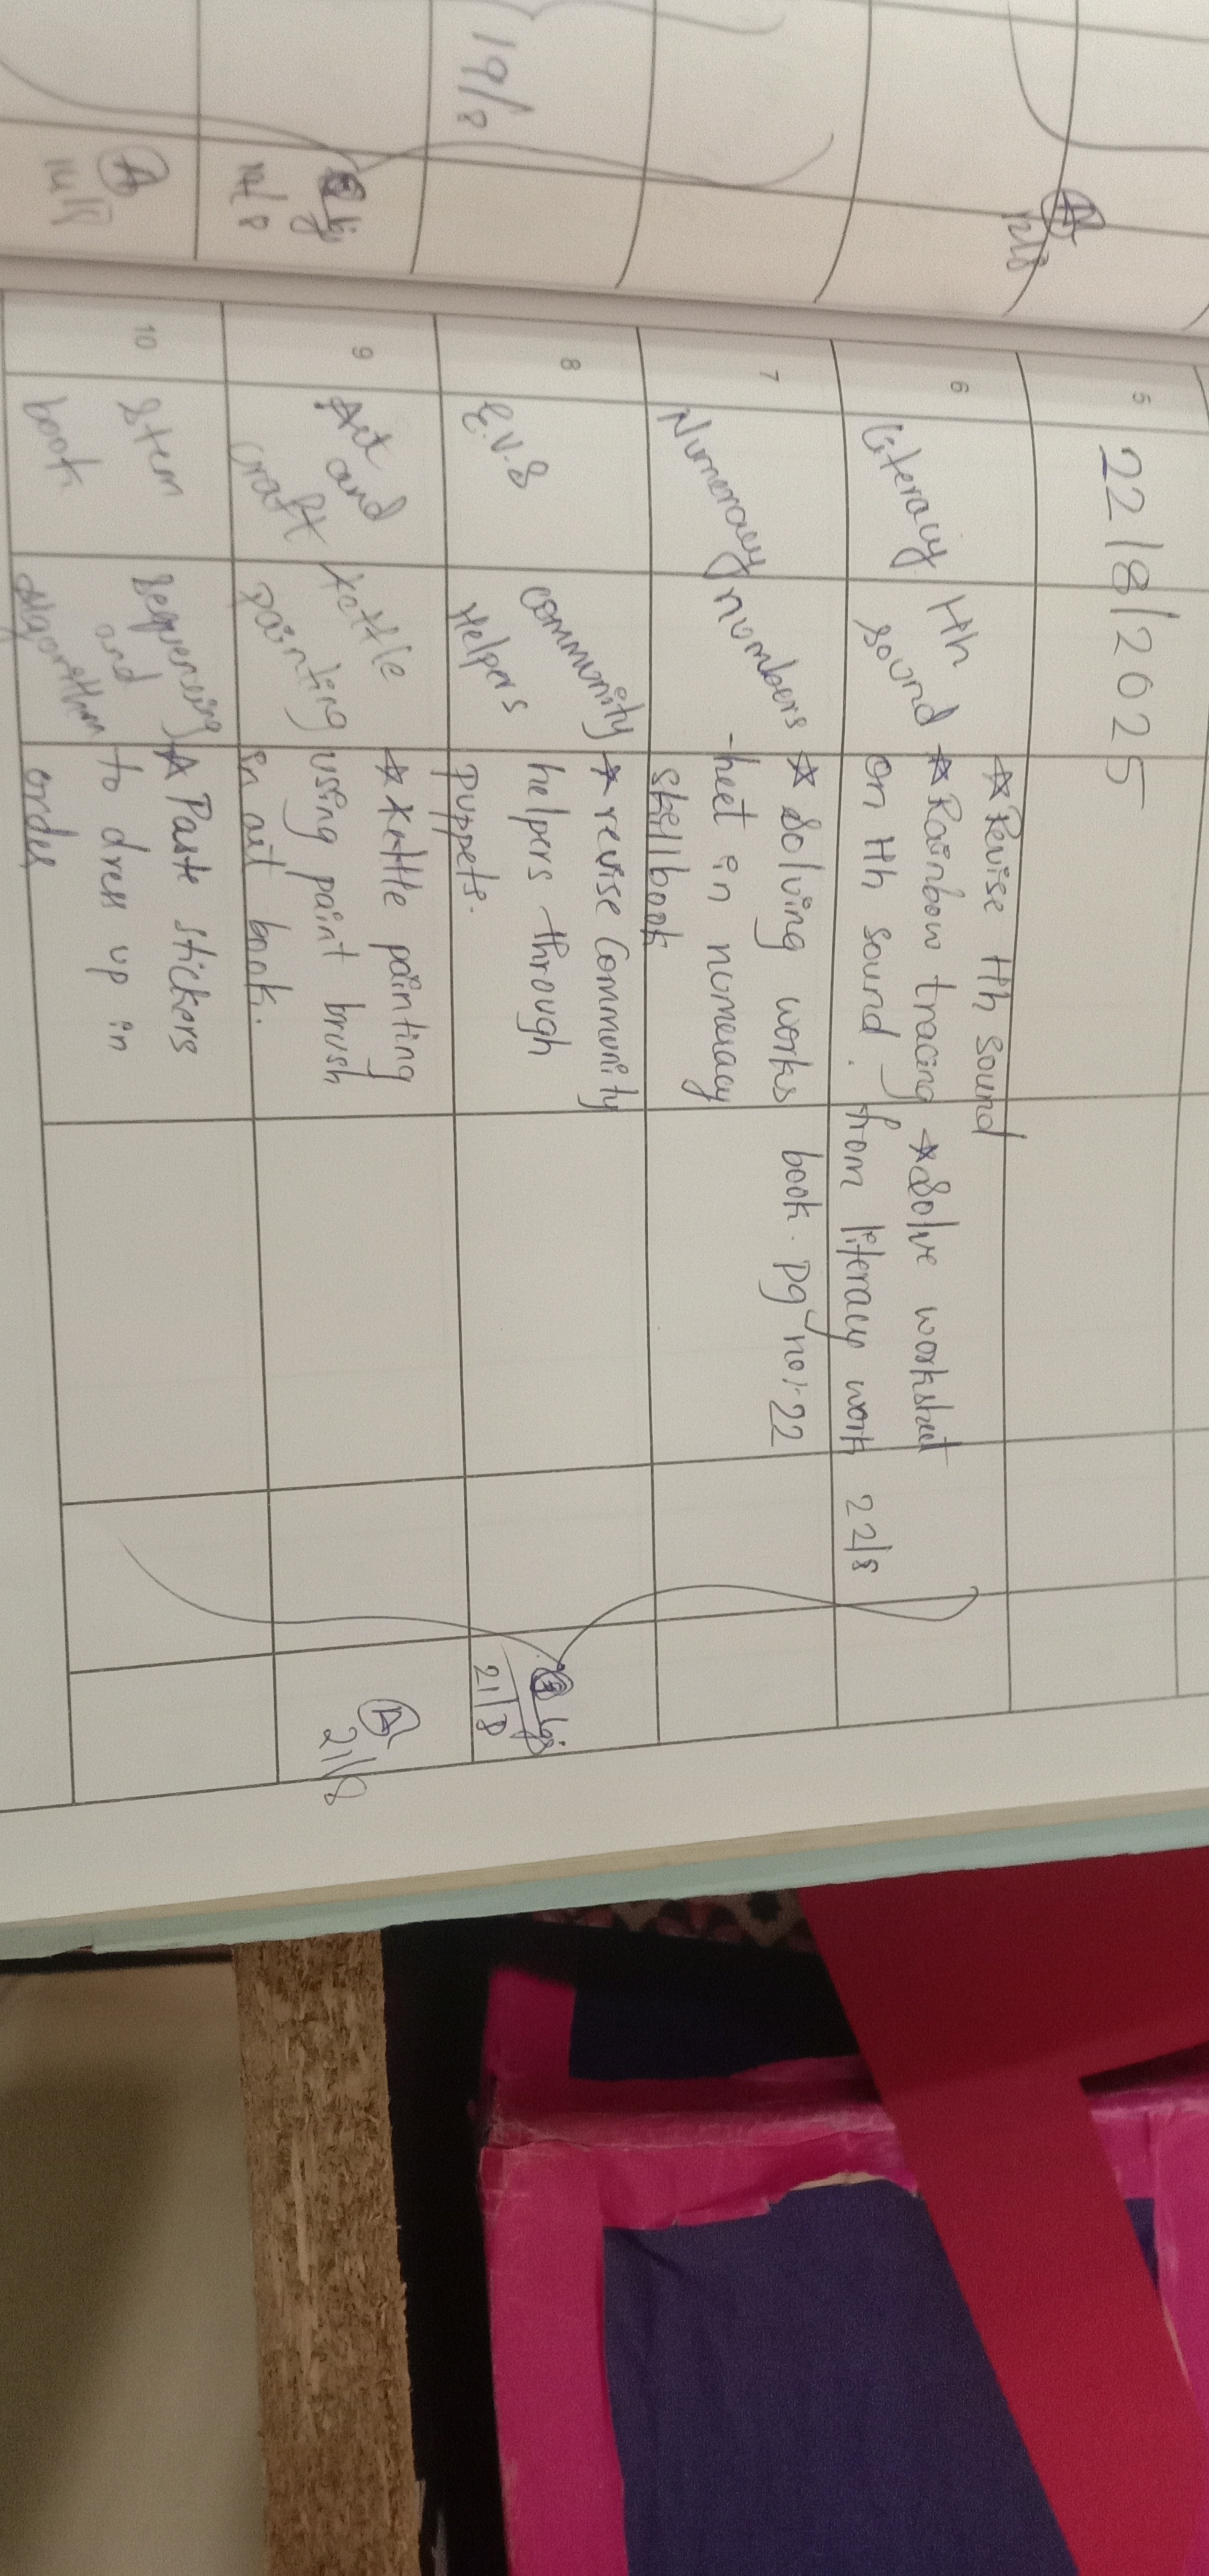 19/8
5
22/8/2025
6
Literacy
Hh
sound
☆ Revise Hh sound
☆ Rainbow tracing
on Hh sound.
☆ Solve worksheet
from literacy work
book. pg no:- 22
22/8
7
Numeracy
numbers
☆ Solving works
-heet in numeracy
skillbook
8
E.V.S
community
Helpers
☆ revise Community
helpers through
puppets.
21/8
9
Art and
craft
kettle
painting
☆ kettle painting
using paint brush
in art book.
A
21/8
10
Stem
book
Sequencing
and
☆ Paste stickers
to dress up in
order